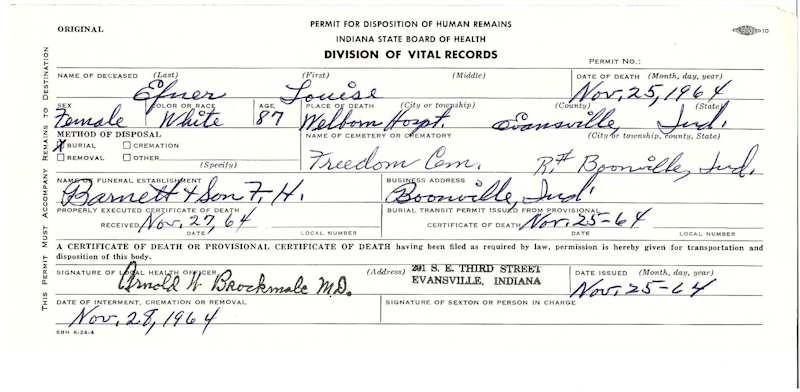 ORIGINAL
PERMIT FOR DISPOSITION OF HUMAN REMAINS
INDIANA STATE BOARD OF HEALTH
DIVISION OF VITAL RECORDS
10
PERMIT NO.:
THIS PERMIT MUST ACCOMPANY REMAINS TO DESTINATION
NAME OF DECEASED (Last) (First) (Middle) DATE OF DEATH (Month, day, year)
Efner Louise Nov. 25, 1964
SEX COLOR OR RACE AGE PLACE OF DEATH (City or township) (County) (State)
Female White 87 Welborn Hospt. Evansville, Ind.
METHOD OF DISPOSAL NAME OF CEMETERY OR CREMATORY (City or township, county, State)
X BURIAL CREMATION
REMOVAL OTHER (Specify)
Freedom Cem. R.# Boonville, Ind.
NAME OF FUNERAL ESTABLISHMENT BUSINESS ADDRESS
Barnett + Son F. H. Boonville, Ind.
PROPERLY EXECUTED CERTIFICATE OF DEATH BURIAL TRANSIT PERMIT ISSUED FROM PROVISIONAL
RECEIVED Nov. 27, 64 CERTIFICATE OF DEATH Nov. 25-64
DATE LOCAL NUMBER DATE LOCAL NUMBER
A CERTIFICATE OF DEATH OR PROVISIONAL CERTIFICATE OF DEATH having been filed as required by law, permission is hereby given for transportation and
disposition of this body.
SIGNATURE OF LOCAL HEALTH OFFICER (Address) 201 S. E. THIRD STREET DATE ISSUED (Month, day, year)
Arnold W Brockmole M.D. EVANSVILLE, INDIANA Nov. 25-64
DATE OF INTERMENT, CREMATION OR REMOVAL SIGNATURE OF SEXTON OR PERSON IN CHARGE
Nov. 28, 1964
SBH 6-24-4